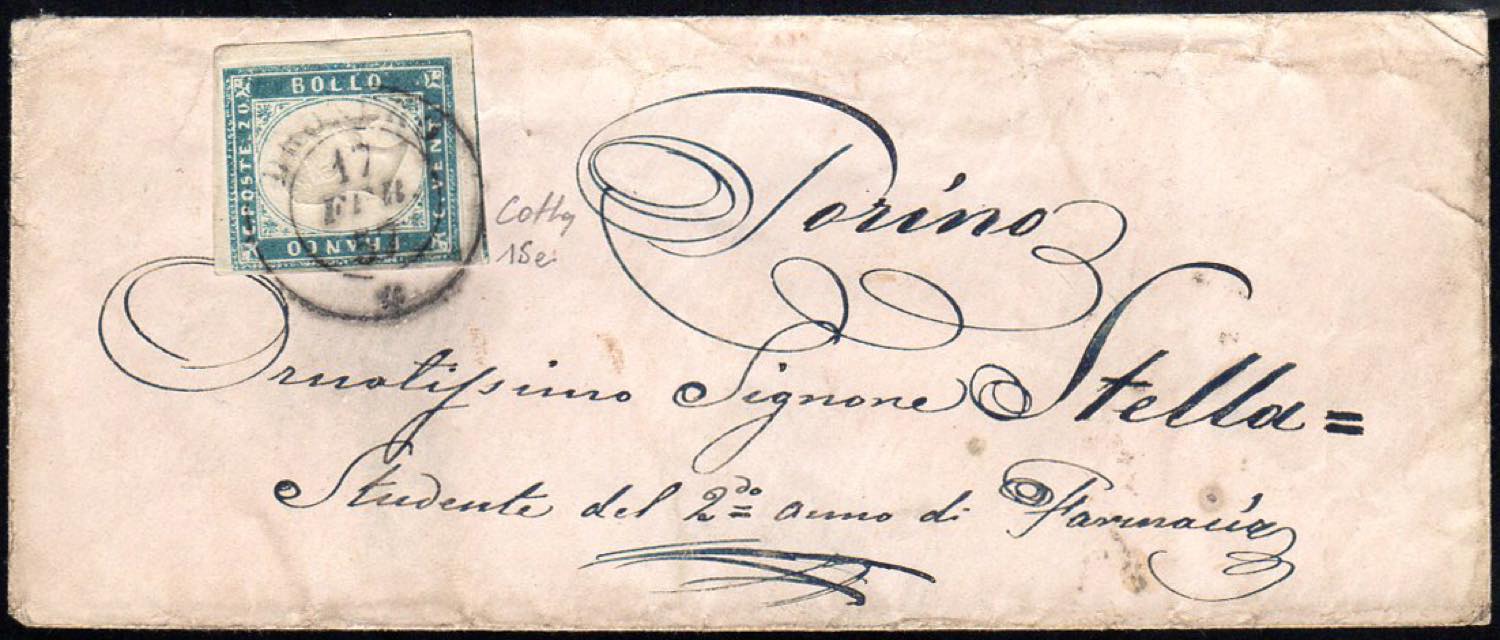 BOLLO
C. POSTE 20
C. VENTI
FRANCO
17
FEB
57
Torino
Cotta
15e
Ornatissimo Signore Stella =
Studente del 2do anno di Farmacia